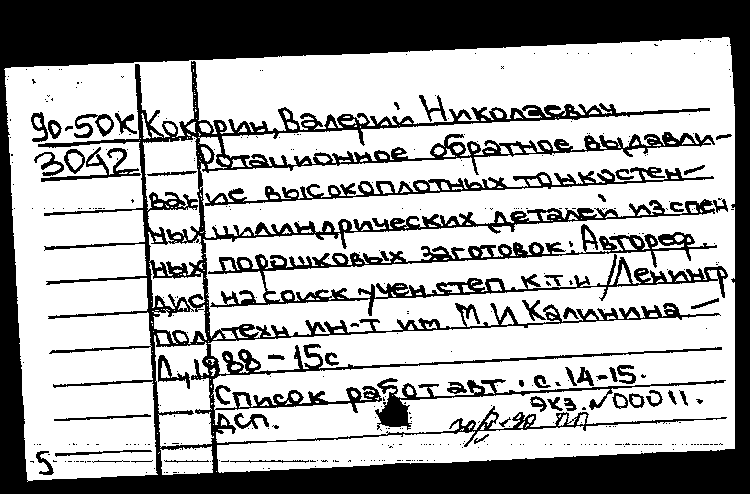 90-50К Кокорин, Валерий Николаевич
3042 Ротационное обратное выдавли-
вание высокоплотных тонкостен-
ных цилиндрических деталей из спечен-
ных порошковых заготовок: Автореф.
дис. на соиск. учен. степ. к.т.н. // Ленингр.
политехн. ин-т им. М.И. Калинина. -
Л., 1988 - 15с.
Список работ авт.: с. 14-15.
ДСП. экз. №00011.
5